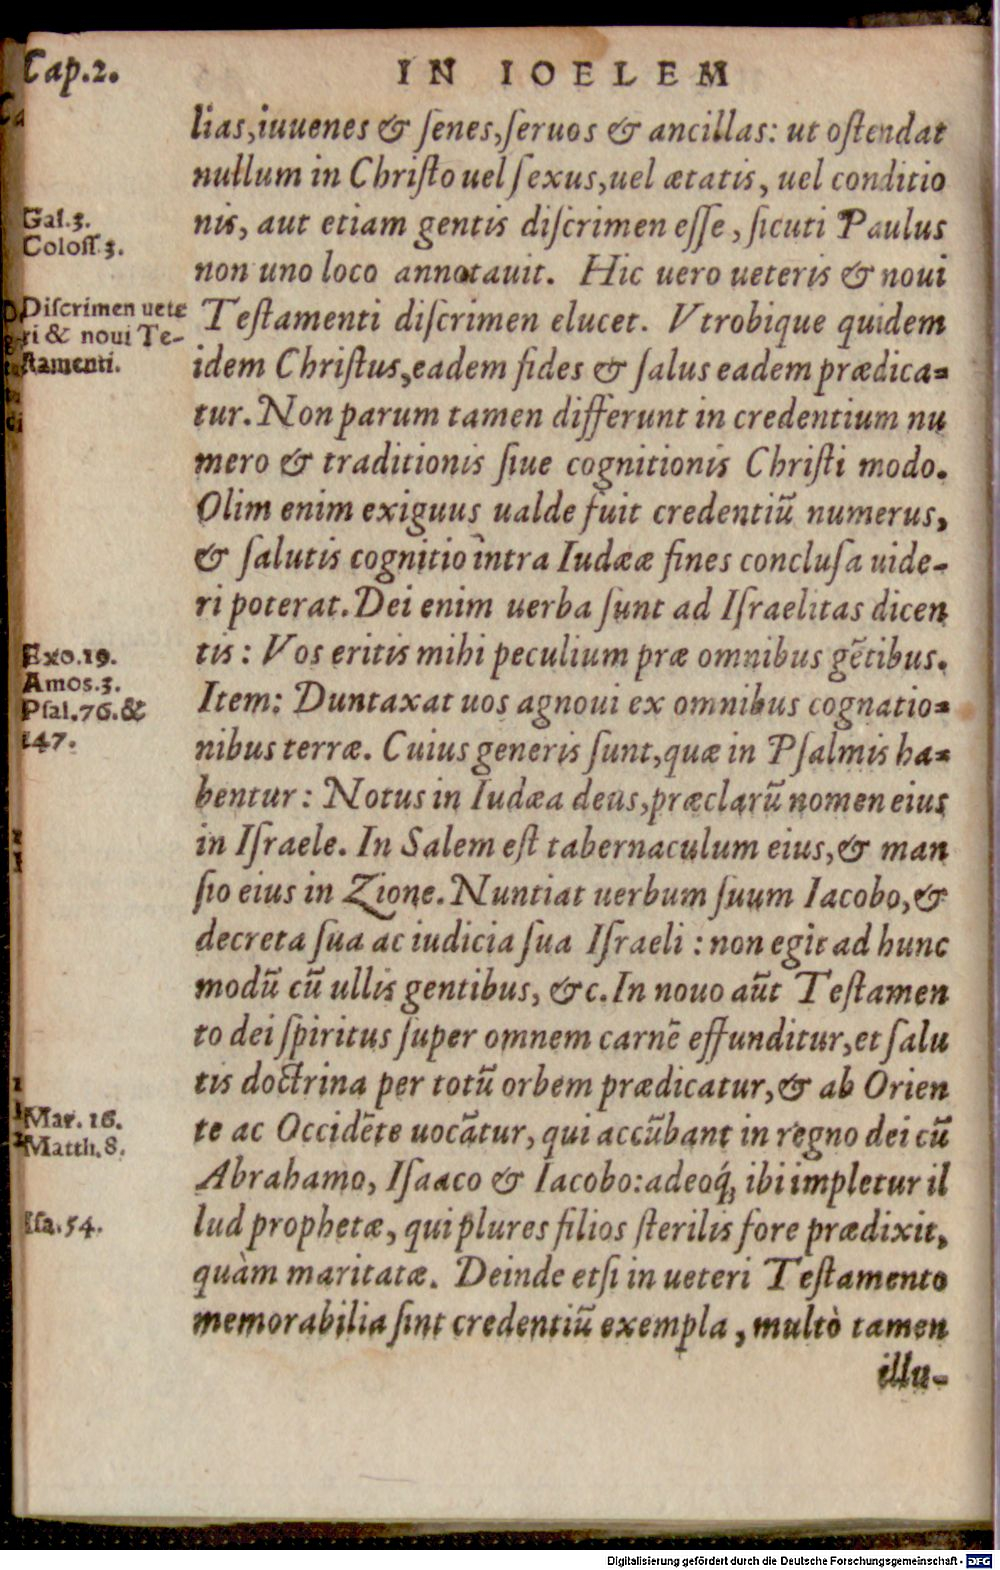 Cap.2.
IN IOELEM
lias,iuuenes & ſenes,ſeruos & ancillas: ut oſtendat
nullum in Chriſto uel ſexus,uel ætatis, uel conditio
nis, aut etiam gentis diſcrimen eſſe, ſicuti Paulus
non uno loco annotauit. Hic uero ueteris & noui
Teſtamenti diſcrimen elucet. Vtrobique quidem
idem Chriſtus,eadem fides & ſalus eadem prædica=
tur. Non parum tamen differunt in credentium nu
mero & traditionis ſiue cognitionis Chriſti modo.
Olim enim exiguus ualde fuit credentiũ numerus,
& ſalutis cognitio intra Iudææ fines concluſa uide-
ri poterat. Dei enim uerba ſunt ad Iſraelitas dicen
tis: Vos eritis mihi peculium præ omnibus gẽtibus.
Item: Duntaxat uos agnoui ex omnibus cognatio=
nibus terræ. Cuius generis ſunt,quæ in Pſalmis ha=
bentur: Notus in Iudæa deus,præclarũ nomen eius
in Iſraele. In Salem eſt tabernaculum eius,& man
ſio eius in Zione. Nuntiat uerbum ſuum Iacobo,&
decreta ſua ac iudicia ſua Iſraeli: non egit ad hunc
modũ cũ ullis gentibus, &c. In nouo aũt Teſtamen
to dei ſpiritus ſuper omnem carnẽ effunditur,et ſalu
tis doctrina per totũ orbem prædicatur,& ab Orien
te ac Occidẽte uocãtur, qui accũbant in regno dei cũ
Abrahamo, Iſaaco & Iacobo: adeoq́; ibi impletur il
lud prophetæ, qui plures filios ſterilis fore prædixit,
quàm maritatæ. Deinde etſi in ueteri Teſtamento
memorabilia ſint credentiũ exempla, multò tamen
illu-
Gal.3.
Coloſſ.3.
Diſcrimen uete
ri & noui Te-
ſtamenti.
Exo.19.
Amos.3.
Pſal.76.&
147.
Mar. 16.
Matth.8.
Iſa.54.
Digitalisierung gefördert durch die Deutsche Forschungsgemeinschaft - DFG